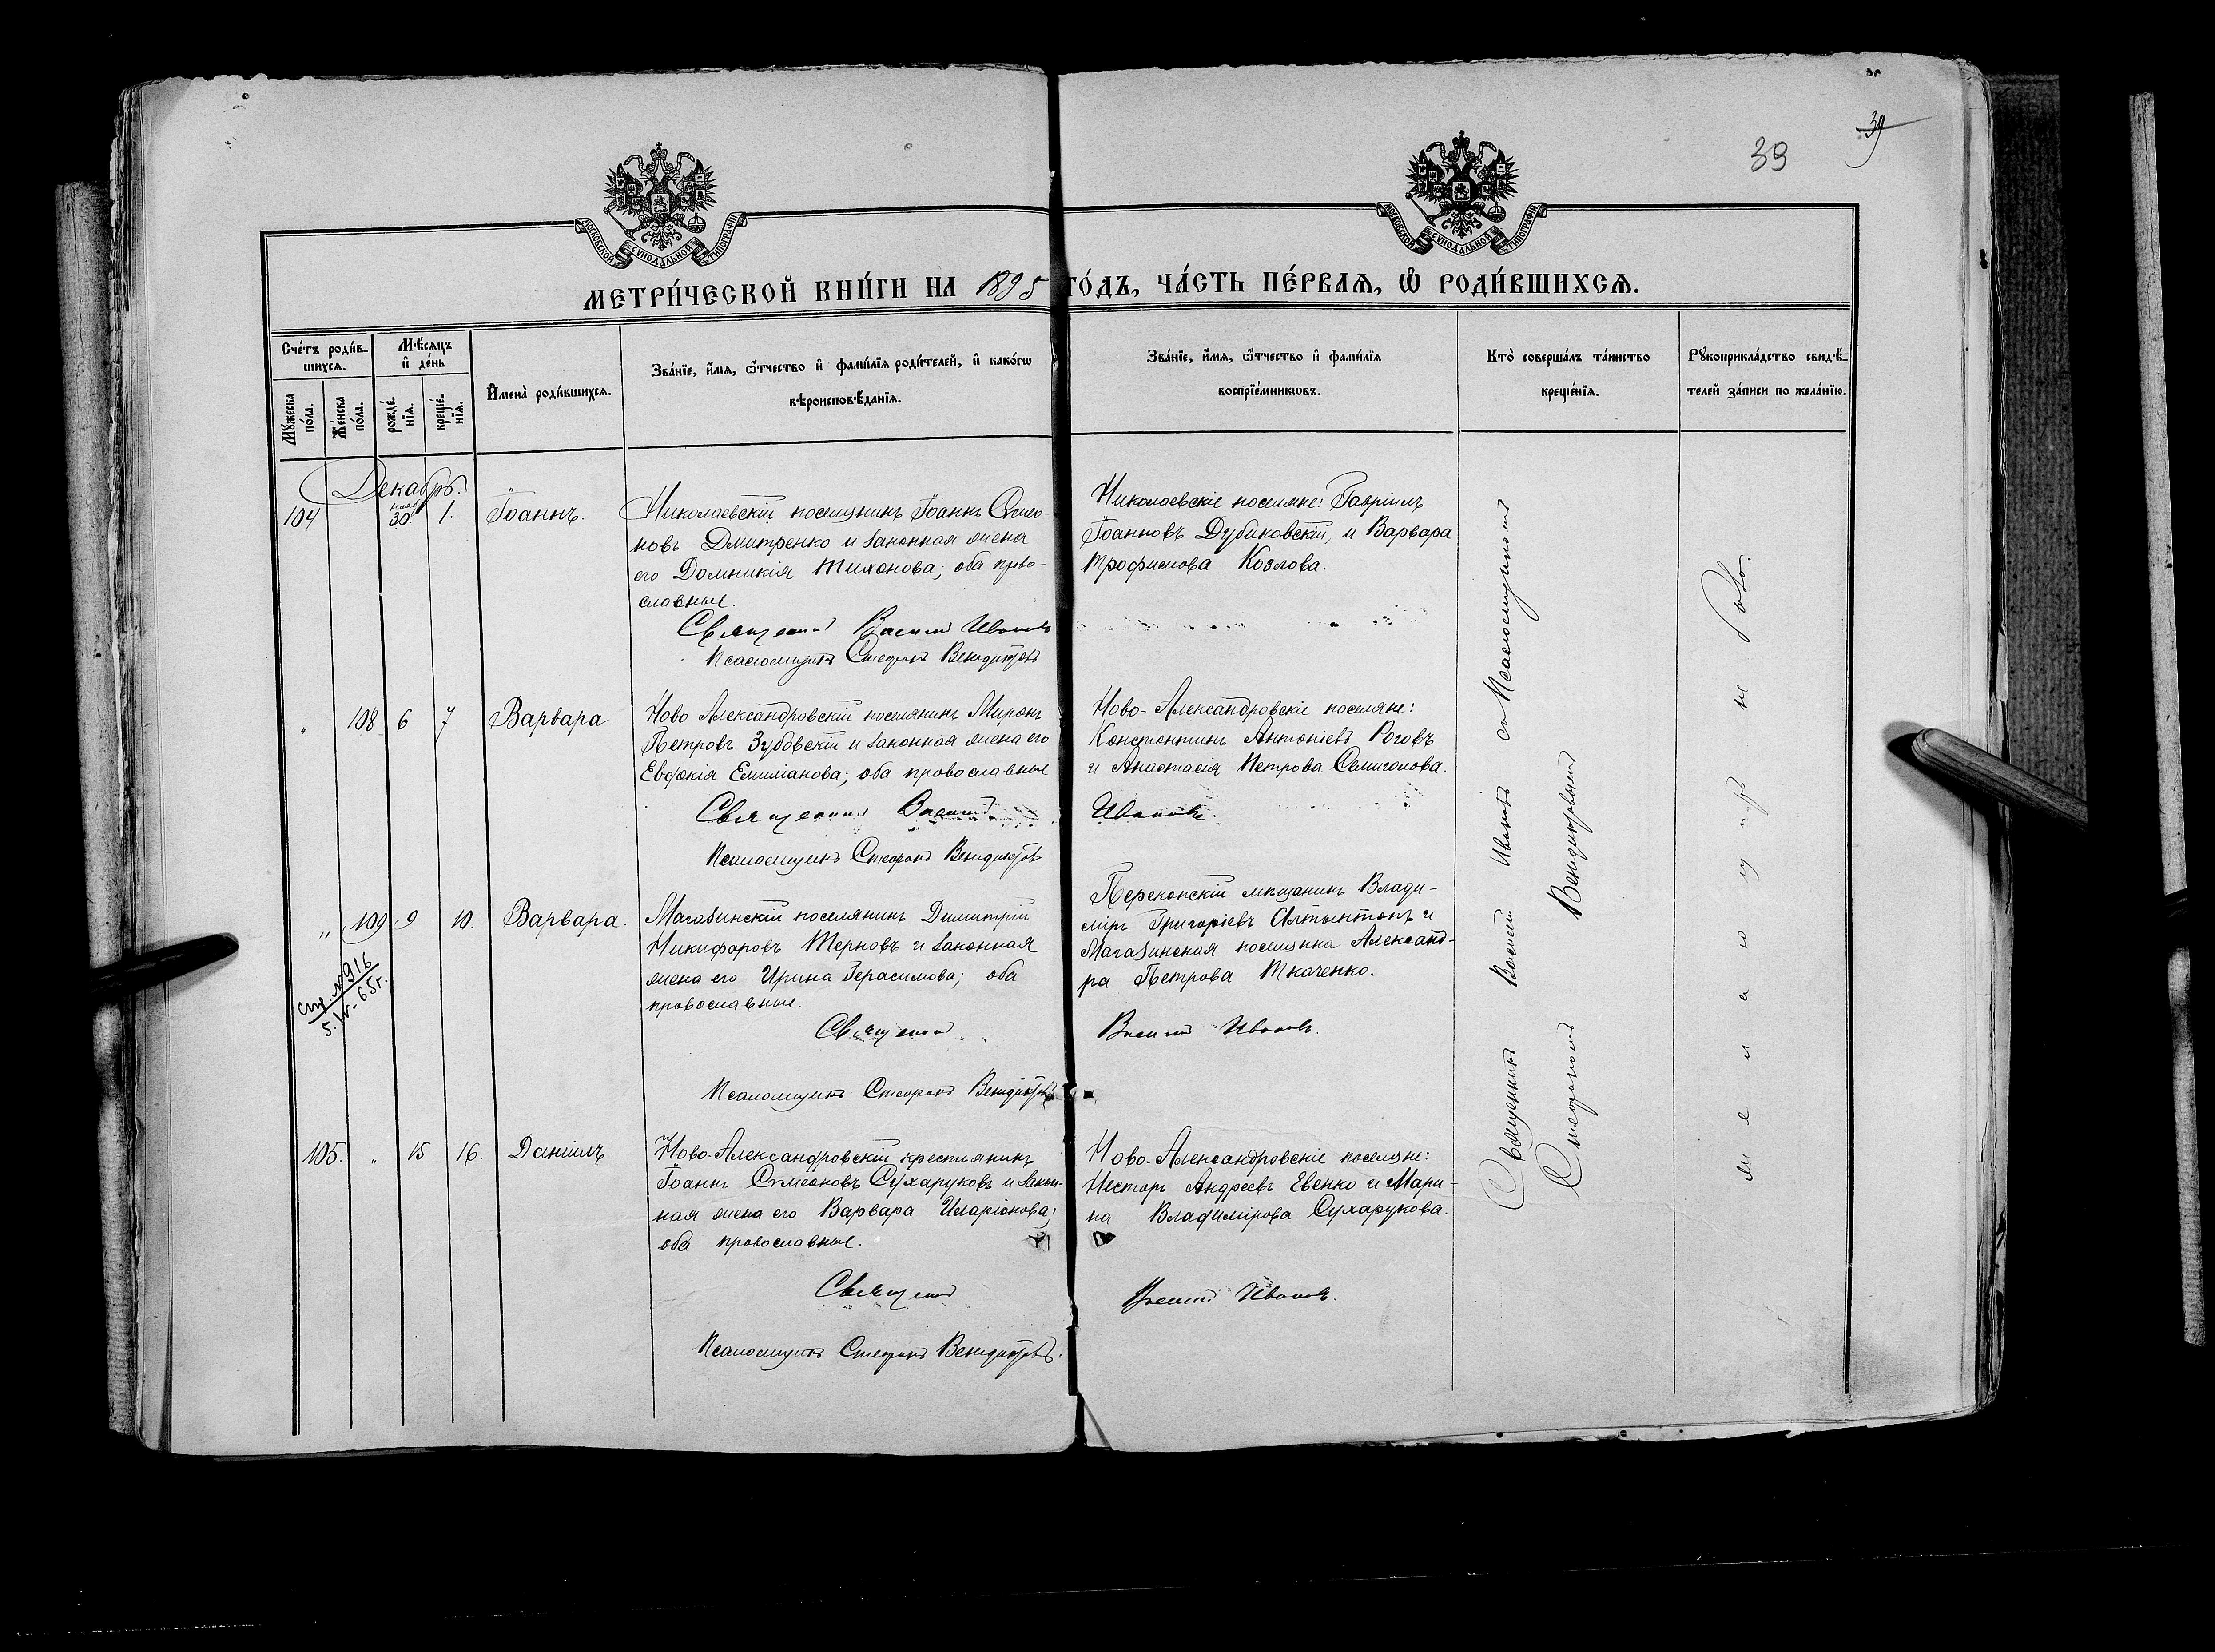 39
39
МОСКОВСКОЙ СѴНОДАЛЬНОЙ ТИПОГРАФІИ
МОСКОВСКОЙ СѴНОДАЛЬНОЙ ТИПОГРАФІИ
МЕТРИ́ЧЕСКОЙ КНИ́ГИ НА 1895 ГО́ДЪ, ЧА́СТЬ ПЕ́РВАѦ, Ѡ҆ РОДИ́ВШИХСѦ.
Сче́тъ роди́в-
шихсѧ.
Мꙋ́жеска
по́ла.
Же́нска
по́ла.
Мѣ́сѧцъ
и҆ де́нь
рожде́-
нїѧ.
креще́-
нїѧ.
И҆мена̀ роди́вшихсѧ.
Зва́нїе, и҆́мѧ, ѻ҆́тчество и҆ фами́лїѧ роди́телей, и҆ како́гѡ
вѣроисповѣ́данїѧ.
Зва́нїе, и҆́мѧ, ѻ҆́тчество и҆ фами́лїѧ
воспрїе́мникѡвъ.
Кто̀ соверша́лъ та́инство
креще́нїѧ.
Рꙋкоприкла́дство свидѣ́-
телей за́писи по жела́нїю.
Декабрь.
104
ноя
30. 1. Іоаннъ.
Николаевскій поселянинъ Іоаннъ Симео
новъ Дмитренко и законная жена
его Домникія Тихонова; оба право-
славные.
Священникъ Василій Ивановъ
Псаломщикъ Стефанъ Венидиктовъ
Николаевскіе поселяне: Гавріилъ
Іоанновъ Дубиковскій, и Варвара
Трофимова Козлова.
" 108 6 7 Варвара
Ново Александровскій поселянинъ Миронъ
Петровъ Зубовскій и законная жена его
Евфокія Емиліанова; оба православные
Священникъ Василій Ивановъ.
Псаломщикъ Стефанъ Венидиктовъ
Ново-Александровскіе поселяне:
Константинъ Антоніевъ Роговъ
и Анастасія Петрова Семиголова.
" 109 9 10. Варвара.
№ 916
5.IV-65г.
Магазинскій поселянинъ Димитрій
Никифоровъ Терновъ и законная
жена его Ирина Герасимова; оба
православные.
Священникъ Василій Ивановъ.
Псаломщикъ Стефанъ Венидиктовъ
Перекопскій мѣщанинъ Влади-
міръ Григоріевъ Алтынтопъ и
Магазинская поселянка Александ-
ра Петрова Ткаченко.
105. " 15 16. Даніилъ
Ново-Александровскій крестьянинъ
Іоаннъ Симеоновъ Сухаруковъ и закон-
ная жена его Варвара Иларіонова;
оба православные.
Священникъ Василій Ивановъ.
Псаломщикъ Стефанъ Венидиктовъ.
Ново-Александровскіе поселяне:
Несторъ Андреевъ Евенко и Мари-
на Владимірова Сухарукова.
Священникъ Василій Ивановъ съ Псаломщикомъ
Стефаномъ Венидиктовымъ